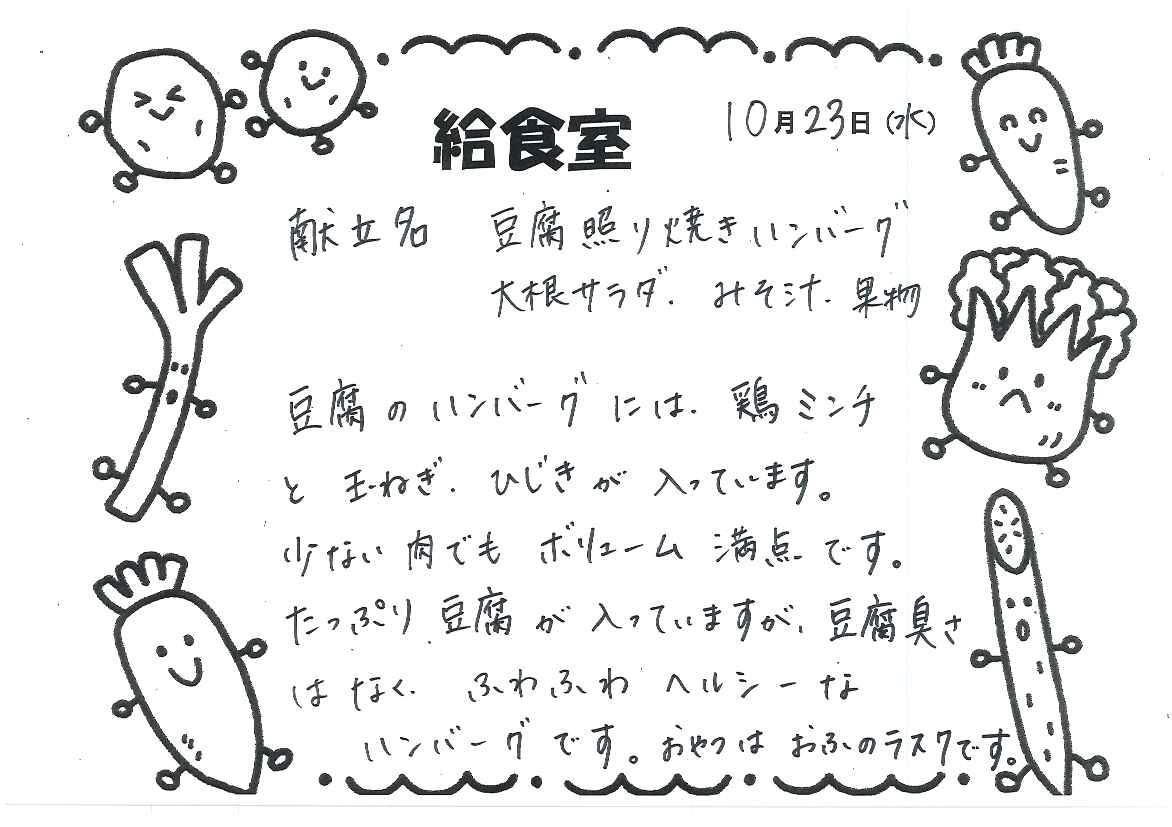 給食室
10月23日(水)
献立名 豆腐照り焼きハンバーグ
大根サラダ、みそ汁、果物
豆腐のハンバーグには、鶏ミンチ
と玉ねぎ、ひじきが入っています。
少ない肉でもボリューム満点です。
たっぷり豆腐が入っていますが、豆腐臭さ
はなく、ふわふわヘルシーな
ハンバーグです。おやつはおふのラスクです。